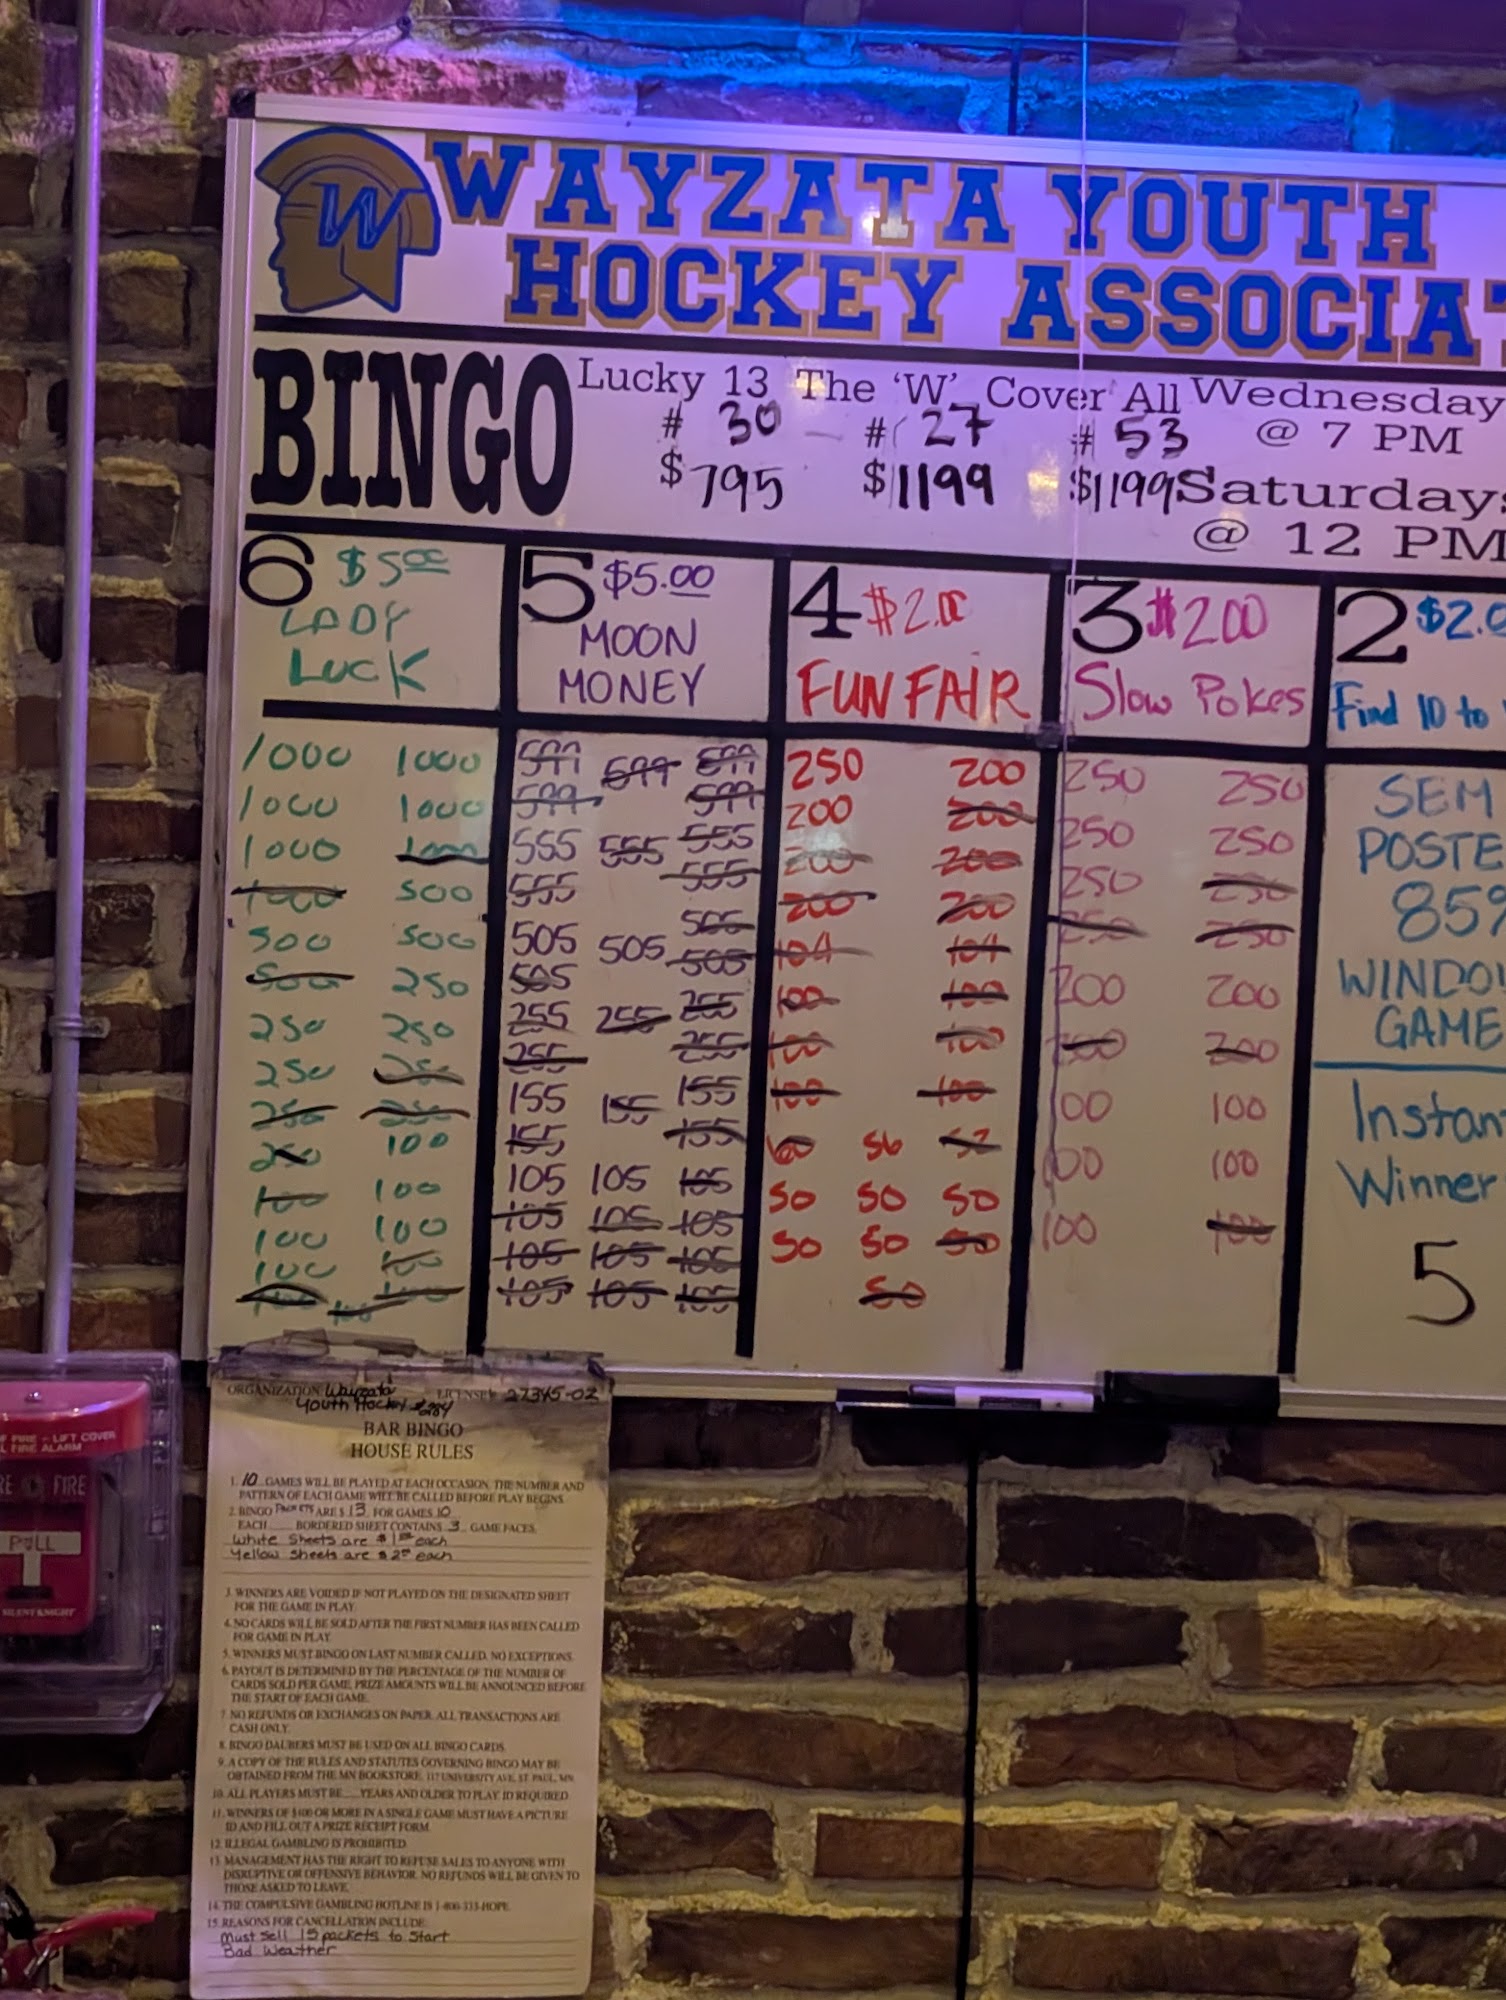 W
WAYZATA YOUTH
HOCKEY ASSOCIAT
BINGO
Lucky 13 The 'W' Cover All Wednesday
# 30 # 27 # 53 @ 7 PM
$795 $1199 $1199 Saturdays
@ 12 PM
6 $5.00
LADY
LUCK
1000 1000
1000 1000
1000 1000
1000 500
500 500
500 250
250 250
250 250
250 250
250 100
100 100
100 100
100 100
100 100 100
5 $5.00
MOON
MONEY
599 599 599
599 599
555 555 555
555 555
505 505 505
505 505
255 255 255
255 255
155 155 155
155 155
105 105 105
105 105 105
105 105 105
105 105 105
4 $2.00
FUN FAIR
250 200
200 200
200 200
200 200
104 104
100 100
100 100
100 100
60 56 52
50 50 50
50 50 50
50
3 $2.00
Slow Pokes
250 250
250 250
250 250
250 250
200 200
200 200
100 100
100 100
100 100
2 $2.0
Find 10 to
SEM
POSTE
85%
WINDOW
GAME
Instan
Winner
5
F FIRE - LIFT COVER
L FIRE ALARM
RE FIRE
PULL
SILENT KNIGHT
ORGANIZATION Wayzata LICENSE# 27345-02
Youth Hockey #284
BAR BINGO
HOUSE RULES
1. 10 GAMES WILL BE PLAYED AT EACH OCCASION. THE NUMBER AND
PATTERN OF EACH GAME WILL BE CALLED BEFORE PLAY BEGINS.
2. BINGO Packets ARE $ 13 FOR GAMES 10
EACH BORDERED SHEET CONTAINS 3 GAME FACES.
White Sheets are $1.00 each
Yellow Sheets are $2.00 each
3. WINNERS ARE VOIDED IF NOT PLAYED ON THE DESIGNATED SHEET
FOR THE GAME IN PLAY.
4. NO CARDS WILL BE SOLD AFTER THE FIRST NUMBER HAS BEEN CALLED
FOR GAME IN PLAY.
5. WINNERS MUST BINGO ON LAST NUMBER CALLED. NO EXCEPTIONS.
6. PAYOUT IS DETERMINED BY THE PERCENTAGE OF THE NUMBER OF
CARDS SOLD PER GAME. PRIZE AMOUNTS WILL BE ANNOUNCED BEFORE
THE START OF EACH GAME.
7. NO REFUNDS OR EXCHANGES ON PAPER. ALL TRANSACTIONS ARE
CASH ONLY.
8. BINGO DAUBERS MUST BE USED ON ALL BINGO CARDS.
9. A COPY OF THE RULES AND STATUTES GOVERNING BINGO MAY BE
OBTAINED FROM THE MN BOOKSTORE, 117 UNIVERSITY AVE, ST. PAUL, MN.
10. ALL PLAYERS MUST BE ___ YEARS AND OLDER TO PLAY. ID REQUIRED.
11. WINNERS OF $100 OR MORE IN A SINGLE GAME MUST HAVE A PICTURE
ID AND FILL OUT A PRIZE RECEIPT FORM.
12. ILLEGAL GAMBLING IS PROHIBITED.
13. MANAGEMENT HAS THE RIGHT TO REFUSE SALES TO ANYONE WITH
DISRUPTIVE OR OFFENSIVE BEHAVIOR. NO REFUNDS WILL BE GIVEN TO
THOSE ASKED TO LEAVE.
14. THE COMPULSIVE GAMBLING HOTLINE IS 1-800-333-HOPE.
15. REASONS FOR CANCELLATION INCLUDE:
Must Sell 15 packets to Start
Bad Weather